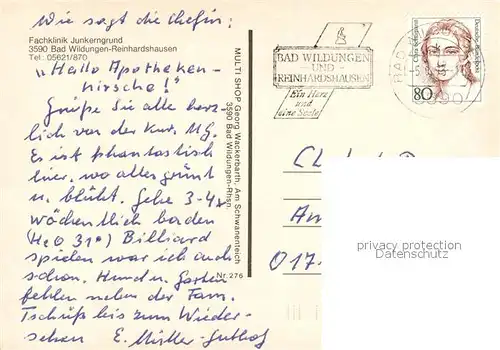 Wie sagt die Chefin:
Fachklinik Junkerngrund
3590 Bad Wildungen-Reinhardshausen
Tel.: 05621/870
„Hallo Apotheken-
hirsche!"
Grüße Sie alle herz-
lich von der Kur. Mg.
Es ist phantastisch
hier, wo alles grünt
u. blüht. Gehe 3-4x
wöchentlich baden
(H₂O 31°) Billiard
spielen war ich auch
schon. Hund u. Garten
fehlen neben der Fam.
Tschüß bis zum Wieder-
sehen E. Müller-
MULTI SHOP Georg Wackerbarth, Am Schwanenteich
3590 Bad Wildungen-Rhsn.
Nr. 276
BAD WILDUNGEN
-UND-
REINHARDSHAUSEN
Ein Herz
und
eine Seele
BAD
3590
80
Deutsche Bundespost
An
017
privacy protection
Datenschutz